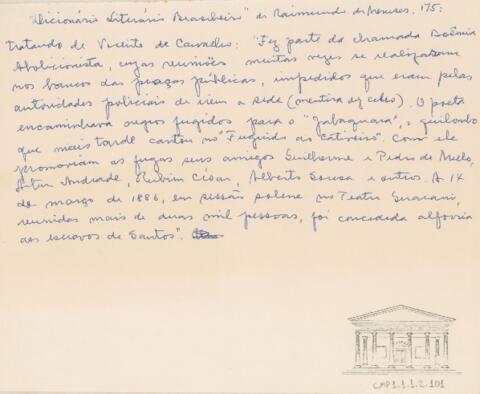 "Dicionário Literário Brasileiro" de Raimundo de Menezes, 175:
tratando de Vicente de Carvalho: "Fez parte da chamada Boêmia
Abolicionista, cujas reuniões muitas vezes se realizavam
nos bancos das praças públicas, impedidos que eram pelas
autoridades policiais de irem a sede (mentira de cabo). O poeta
encaminhava negros fugidos para o "Jabaquara", o quilombo
que mais tarde cantou no "Fugindo ao Cativeiro". Com ele
promoviam as fugas seus amigos Guilherme e Pedro de Mello,
Artur Andrade, Rubim César, Alberto Sousa e outros. A 14
de março de 1886, em sessão solene no Teatro Guarani,
reunidas mais de duas mil pessoas, foi concedida alforria
aos escravos de Santos".
CMP1.1.1.2.101